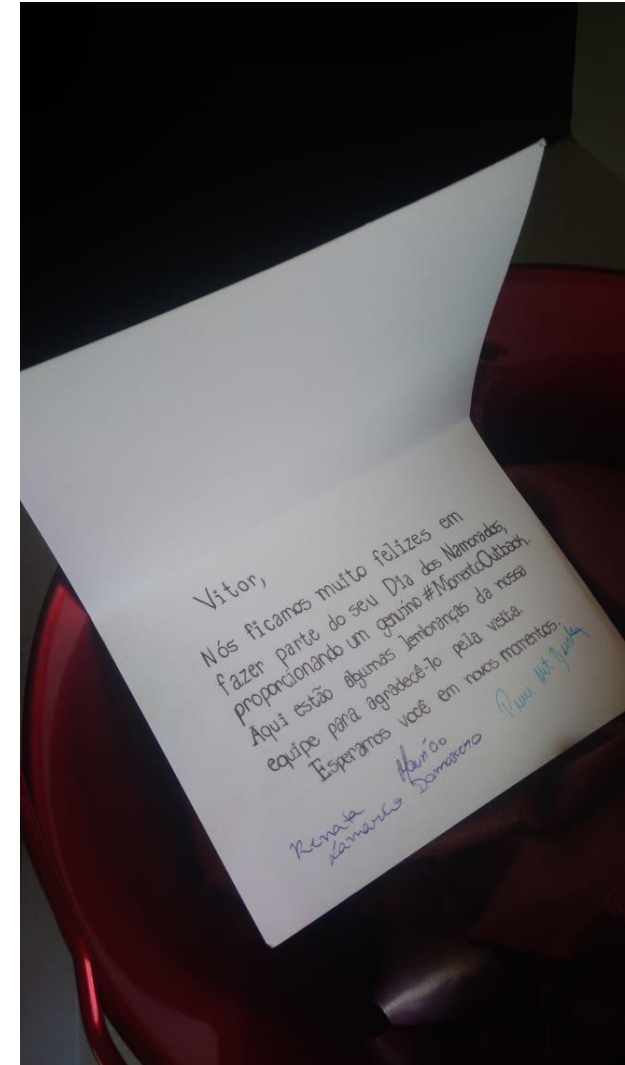 Vitor,
Nós ficamos muito felizes em
fazer parte do seu Dia dos Namorados,
proporcionando um genuíno #MomentoOutback.
Aqui estão algumas lembranças da nossa
equipe para agradecê-lo pela visita.
Esperamos você em novos momentos.
Renata Maurício
Damasceno